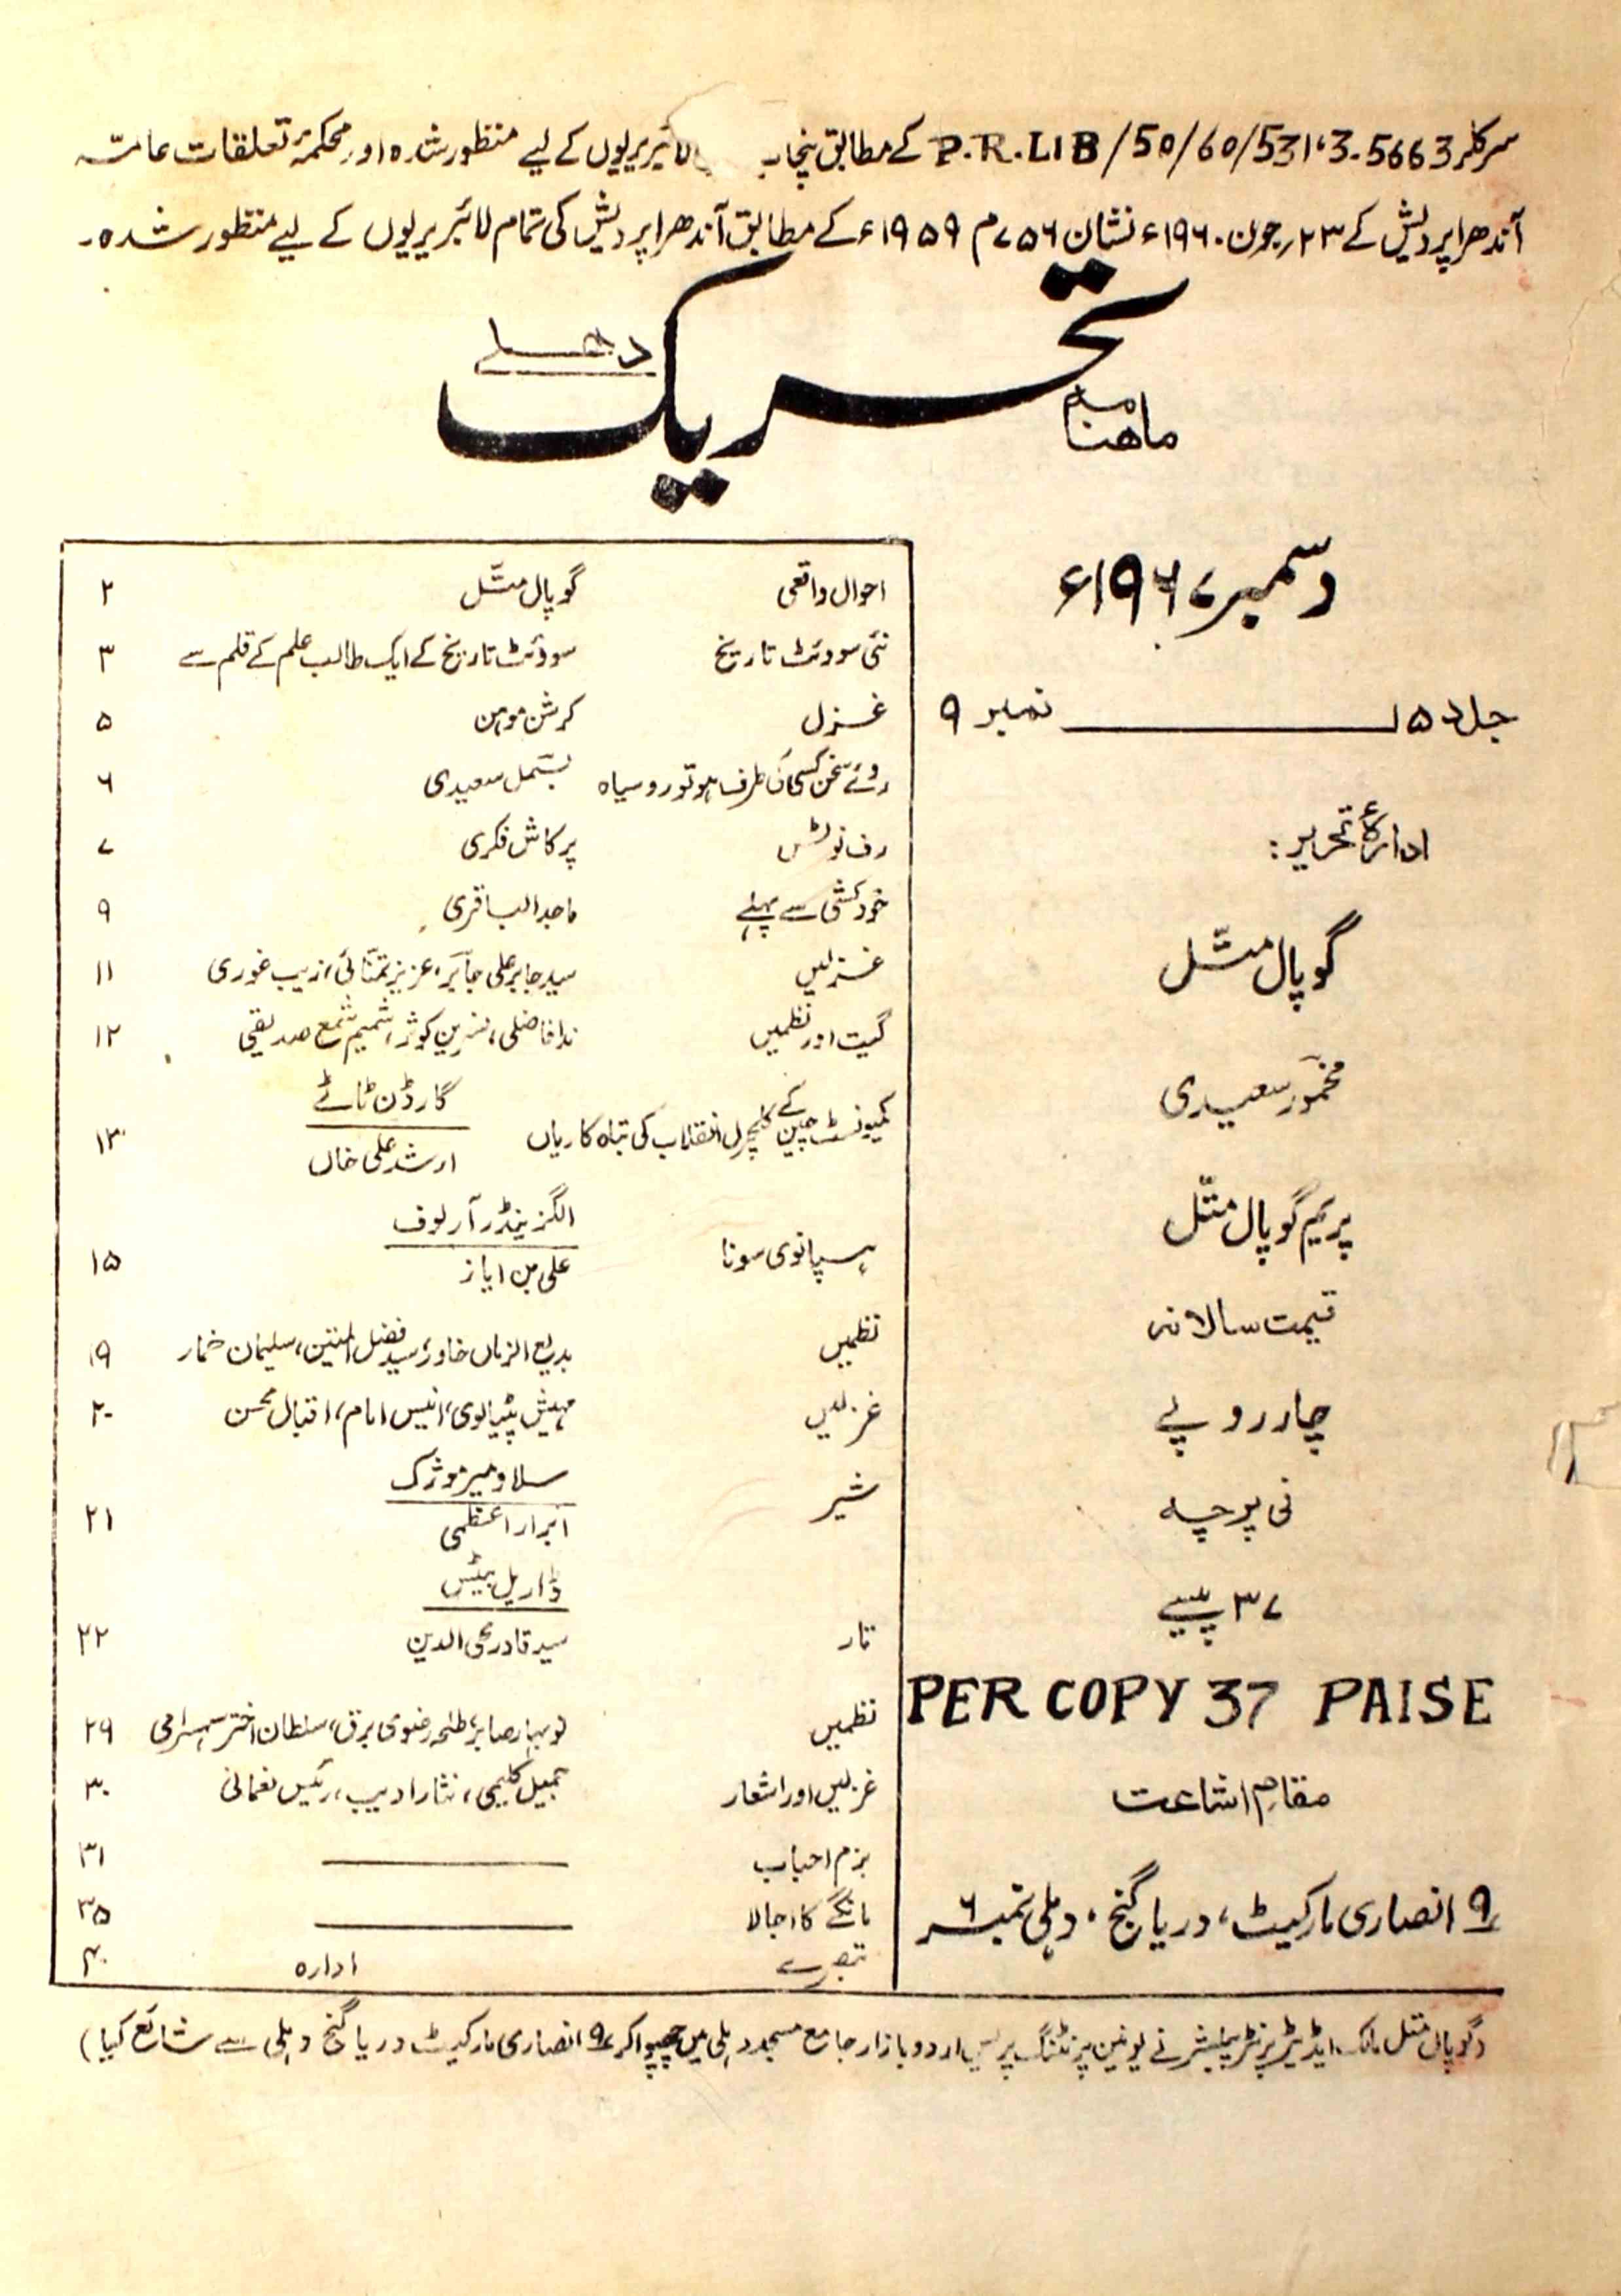 سرکلر P.R.LIB/50/60/531،3-5663 کے مطابق پنجاب لائبریریوں کے لیے منظور شدہ اور محکمۂ تعلقات عامّہ
آندھرا پردیش کے ۲۳؍جون ۱۹۶۰ء نشان ۷۵۶م ۱۹۵۹ء کے مطابق آندھرا پردیش کی تمام لائبریریوں کے لیے منظور شدہ۔
ماھنامہ تحریک دھلے
دسمبر ۱۹۶۷ء
جلد ۱۵ نمبر ۹
ادارۂ تحریر:
گوپال متّل
مخمور سعیدی
پریم گوپال متّل
قیمت سالانہ
چار روپے
فی پرچہ
۳۷ پیسے
PER COPY 37 PAISE
مقامِ اشاعت
۹ انصاری مارکیٹ، دریا گنج، دہلی نمبر ۶
احوال واقعی گوپال متّل ۲
نئی سووئٹ تاریخ سووئٹ تاریخ کے ایک طالب علم کے قلم سے ۳
غزل کرشن موہن ۵
روئے سخن کسی کی طرف ہو تو رو سیاہ بسمل سعیدی ۶
رف نوٹس پرکاش فکری ۷
خودکشی سے پہلے ماجد الباقری ۹
غزلیں سید جابر علی جابر، عزیز تمنّائی، زیب غوری ۱۱
گیت اور نظمیں ندا فاضلی، نسرین کوثر، شمیم شمع صدیقی ۱۲
کمیونسٹ چین کے کلچرل انقلاب کی تباہ کاریاں گارڈن ٹاٹے
ارشد علی خاں ۱۳
ہسپانوی سونا الگزینڈر آرلوف
علی بن ایاز ۱۵
نظمیں بدیع الزماں خاور، سید فضل المتین، سلیمان خمار ۱۹
غزلیں مہیش پٹیالوی، انیس امام، اقبال محسن ۲۰
شیر سلاومیر موژک
ابرار اعظمی ۲۱
تار ڈاریل بیٹس
سید قادر محی الدین ۲۲
نظمیں نوبہار صابر، طلحہ رضوی برق، سلطان اختر سہسرامی ۲۹
غزلیں اور اشعار جمیل کلیمی، نثار ادیب، رئیس نعمانی ۳۰
بزم احباب ۳۱
مانگے کا اجالا ۳۵
تبصرے ادارہ ۴۰
(گوپال متل مالک ایڈیٹر پرنٹر پبلیشر نے یونین پرنٹنگ پریس اردو بازار جامع مسجد دہلی میں چھپوا کر ۹ انصاری مارکیٹ دریا گنج دہلی سے شائع کیا)